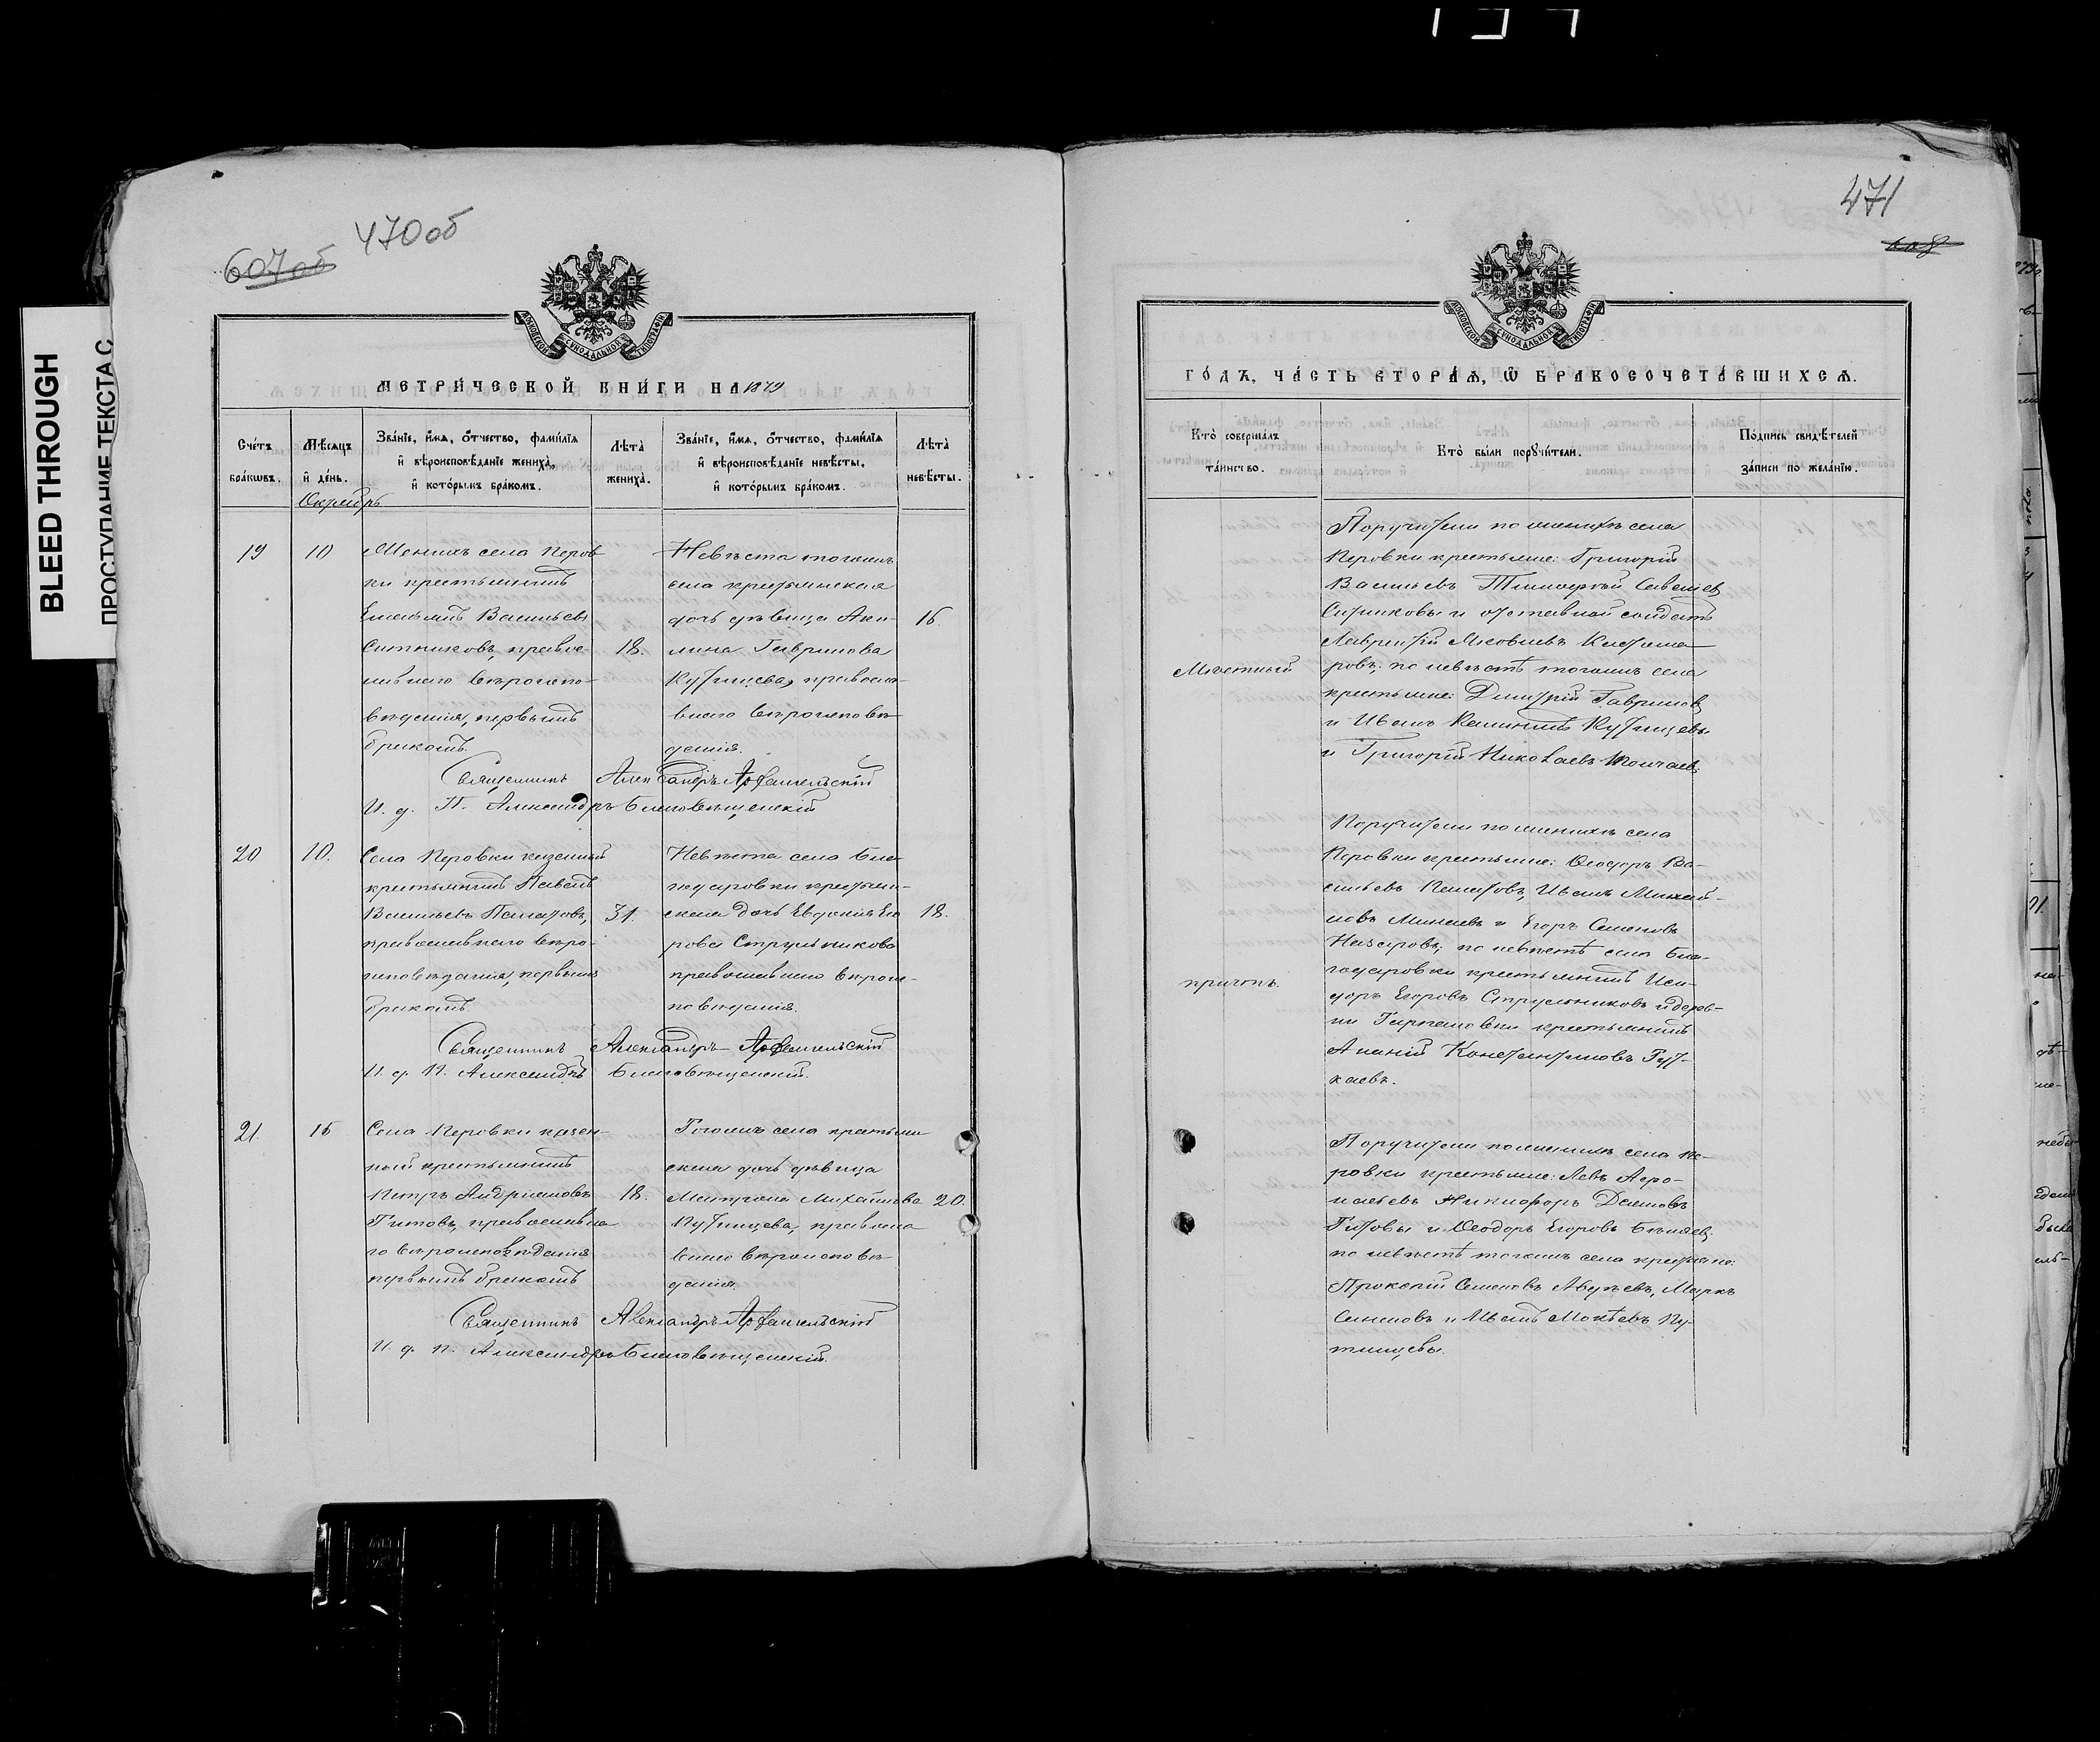 BLEED THROUGH
ПРОСТУПАНИЕ ТЕКСТА С
607об
470об
МОСКОВСКОЙ СѴНОДАЛЬНОЙ ТИПОГРАФІИ
МЕТРИ́ЧЕСКОЙ КНИ́ГИ НА 1879
Сче́тъ бра́кѡвъ.
Мѣ́сяцъ и де́нь.
Зва́нїе, и́мѧ, ѻ́тчество, фами́лїѧ и вѣроисповѣ́данїе жениха̀, и кото́рымъ бра́комъ.
Лѣта̀ жениха̀.
Зва́нїе, и́мѧ, ѻ́тчество, фами́лїѧ и вѣроисповѣ́данїе невѣ́сты, и кото́рымъ бра́комъ.
Лѣта̀ невѣ́сты.
Октябрь
19
10
Женихъ села Перов-
ки крестьянинъ
Емельянъ Васильевъ
Ситниковъ, право-
славнаго вѣроиспо-
вѣданія, первымъ
бракомъ.
18.
Невѣста тогожъ
села крестьянская
дочь дѣвица Аки-
лина Гаврилова
Путинцева, правосла-
внаго вѣроисповѣ-
данія.
16.
Священникъ Александръ Архангельскій
И. д. П. Александръ Благовѣщенскій
20
10.
Села Перовки казенный
крестьянинъ Павелъ
Васильевъ
православнаго вѣро-
исповѣданія, первымъ
бракомъ.
31.
Невѣста села Бла-
годаровки крестьян-
ская дочь Евдокія Его
рова Струльникова
православнаго вѣроис-
повѣданія.
18.
Священникъ Александръ Архангельскій
И. д. П. Александръ Благовѣщенскій.
21.
15
Села Перовки казен-
ный крестьянинъ
Петръ Андріановъ
Титовъ, православна
го вѣроисповѣданія
первымъ бракомъ
18.
Тогожъ села крестьян
ская дочь дѣвица
Матрона Михайлова
Путинцева, правосла
внаго вѣроисповѣ-
данія.
20.
Священникъ Александръ Архангельскій
И. д. П. Александръ Благовѣщенскій.
471
МОСКОВСКОЙ СѴНОДАЛЬНОЙ ТИПОГРАФІИ
ГО́ДЪ, ЧА́СТЬ ВТОРА́Ѧ, Ѽ БРАКОСОЧЕТА́ВШИХСѦ.
Кто̀ соверша́лъ та́инство.
Кто̀ бы́ли порꙋчи́тели.
По́дпись свидѣ́телей за́писи по жела́нїю.
Мѣстный
причтъ.
Поручители по женихѣ села
Перовки крестьяне: Григорій
Васильевъ Тимофей Савельевъ
Ситниковы и отставной солдатъ
Лаврентій Яковлевъ
ровъ; по невѣстѣ тогожъ села
крестьяне: Дмитрій Гавриловъ
и Иванъ Путинцевы
и Григорій Николаевъ
Поручители по женихѣ села
Перовки крестьяне: Ѳеодоръ Ва-
сильевъ Иванъ Михай-
ловъ Минаевъ и Егоръ Семеновъ
Назаровъ; по невѣстѣ села Бла-
годаровки крестьянинъ Иси-
доръ Егоровъ Струльниковъ и дерев-
ни крестьянинъ
Ананій Константиновъ
каевъ.
Поручители по женихѣ села Пе-
ровки крестьяне: Левъ
Никифоръ Демидовъ
Титовы и Ѳеодоръ Егоровъ Бѣляевъ;
по невѣстѣ тогожъ села крестьяне:
Прокопій Семеновъ Авдѣевъ, Маркъ
Семеновъ и Иванъ Мокѣевъ Пу-
тинцевы.